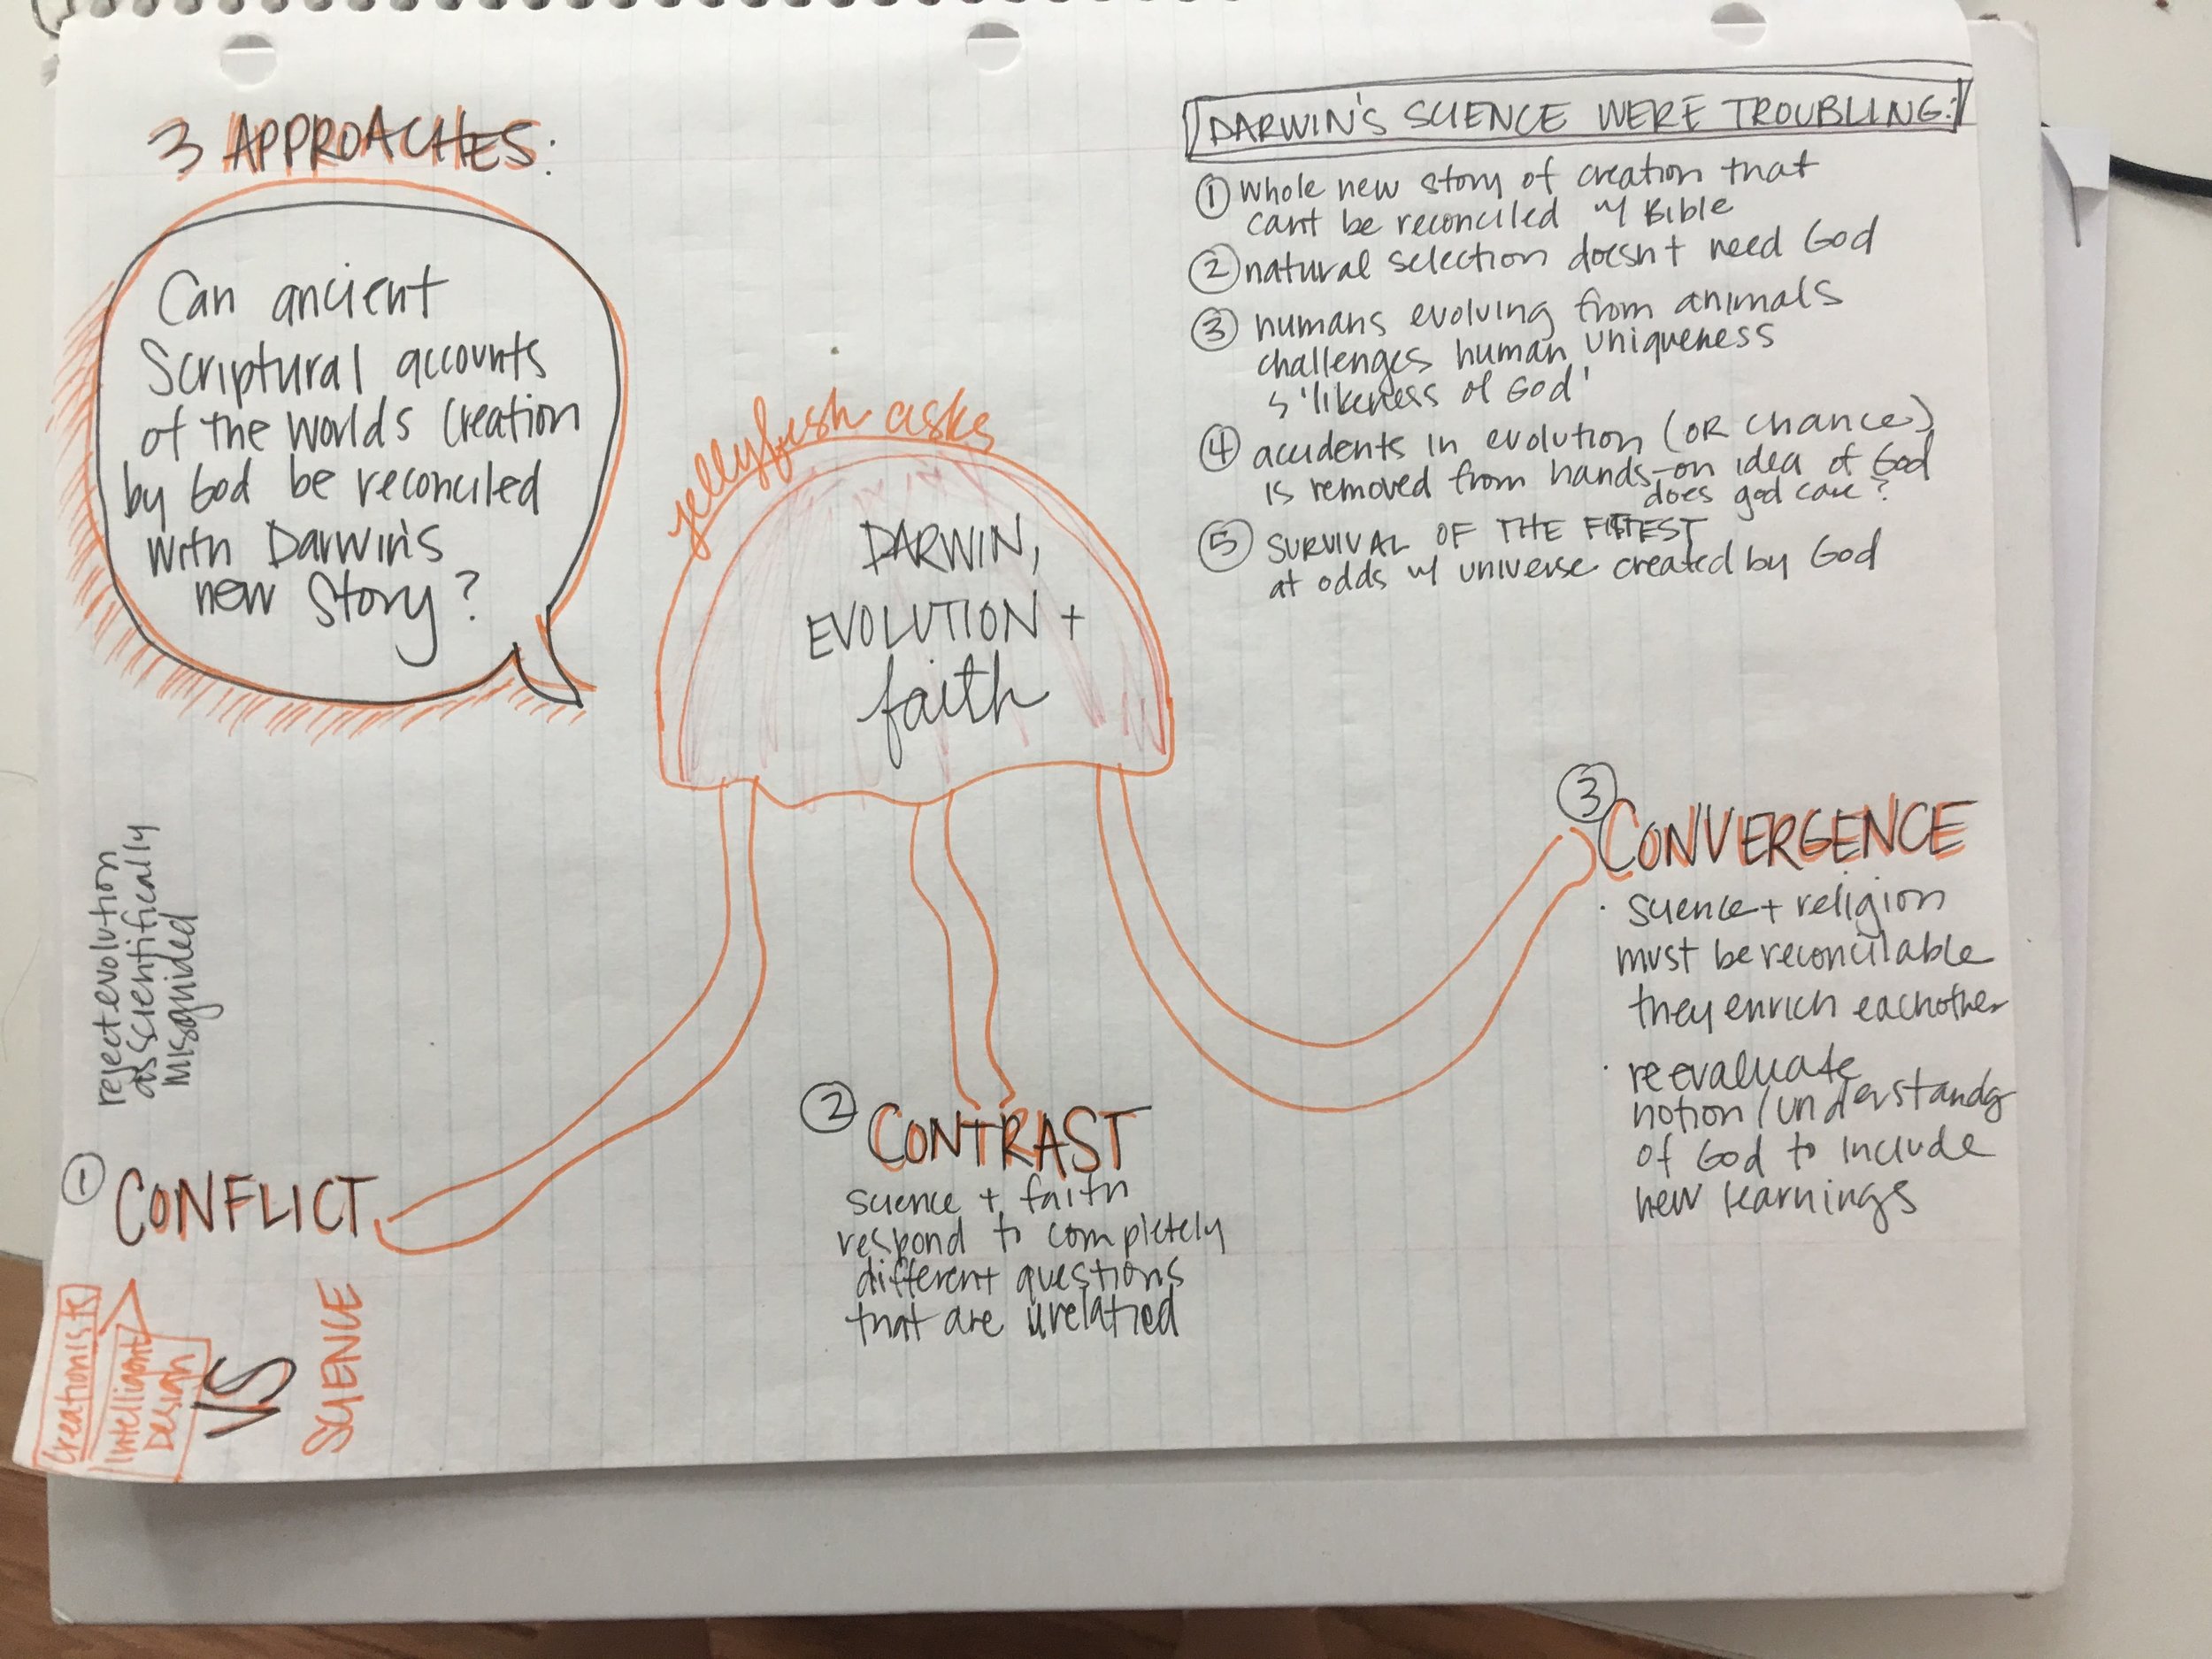 3 APPROACHES:
Can ancient
Scriptural accounts
of the worlds creation
by God be reconciled
with Darwin's
new Story?
jellyfish asks
DARWIN,
EVOLUTION +
faith
DARWIN'S SCIENCE WERE TROUBLING:
① whole new story of creation that
cant be reconciled w/ Bible
② natural selection doesnt need God
③ humans evolving from animals
challenges human uniqueness
↳ 'likeness of God'
④ accidents in evolution (OR chance)
is removed from hands-on idea of God
does god care?
⑤ SURVIVAL OF THE FITTEST
at odds w/ universe created by God
reject evolution
as scientifically
misguided
① CONFLICT
Creationists
Intelligent
Design
VS
SCIENCE
② CONTRAST
science + faith
respond to completely
different questions
that are urelatied
③ CONVERGENCE
· science + religion
must be reconcilable
they enrich eachother
· reevaluate
notion/understandg
of God to include
new learnings